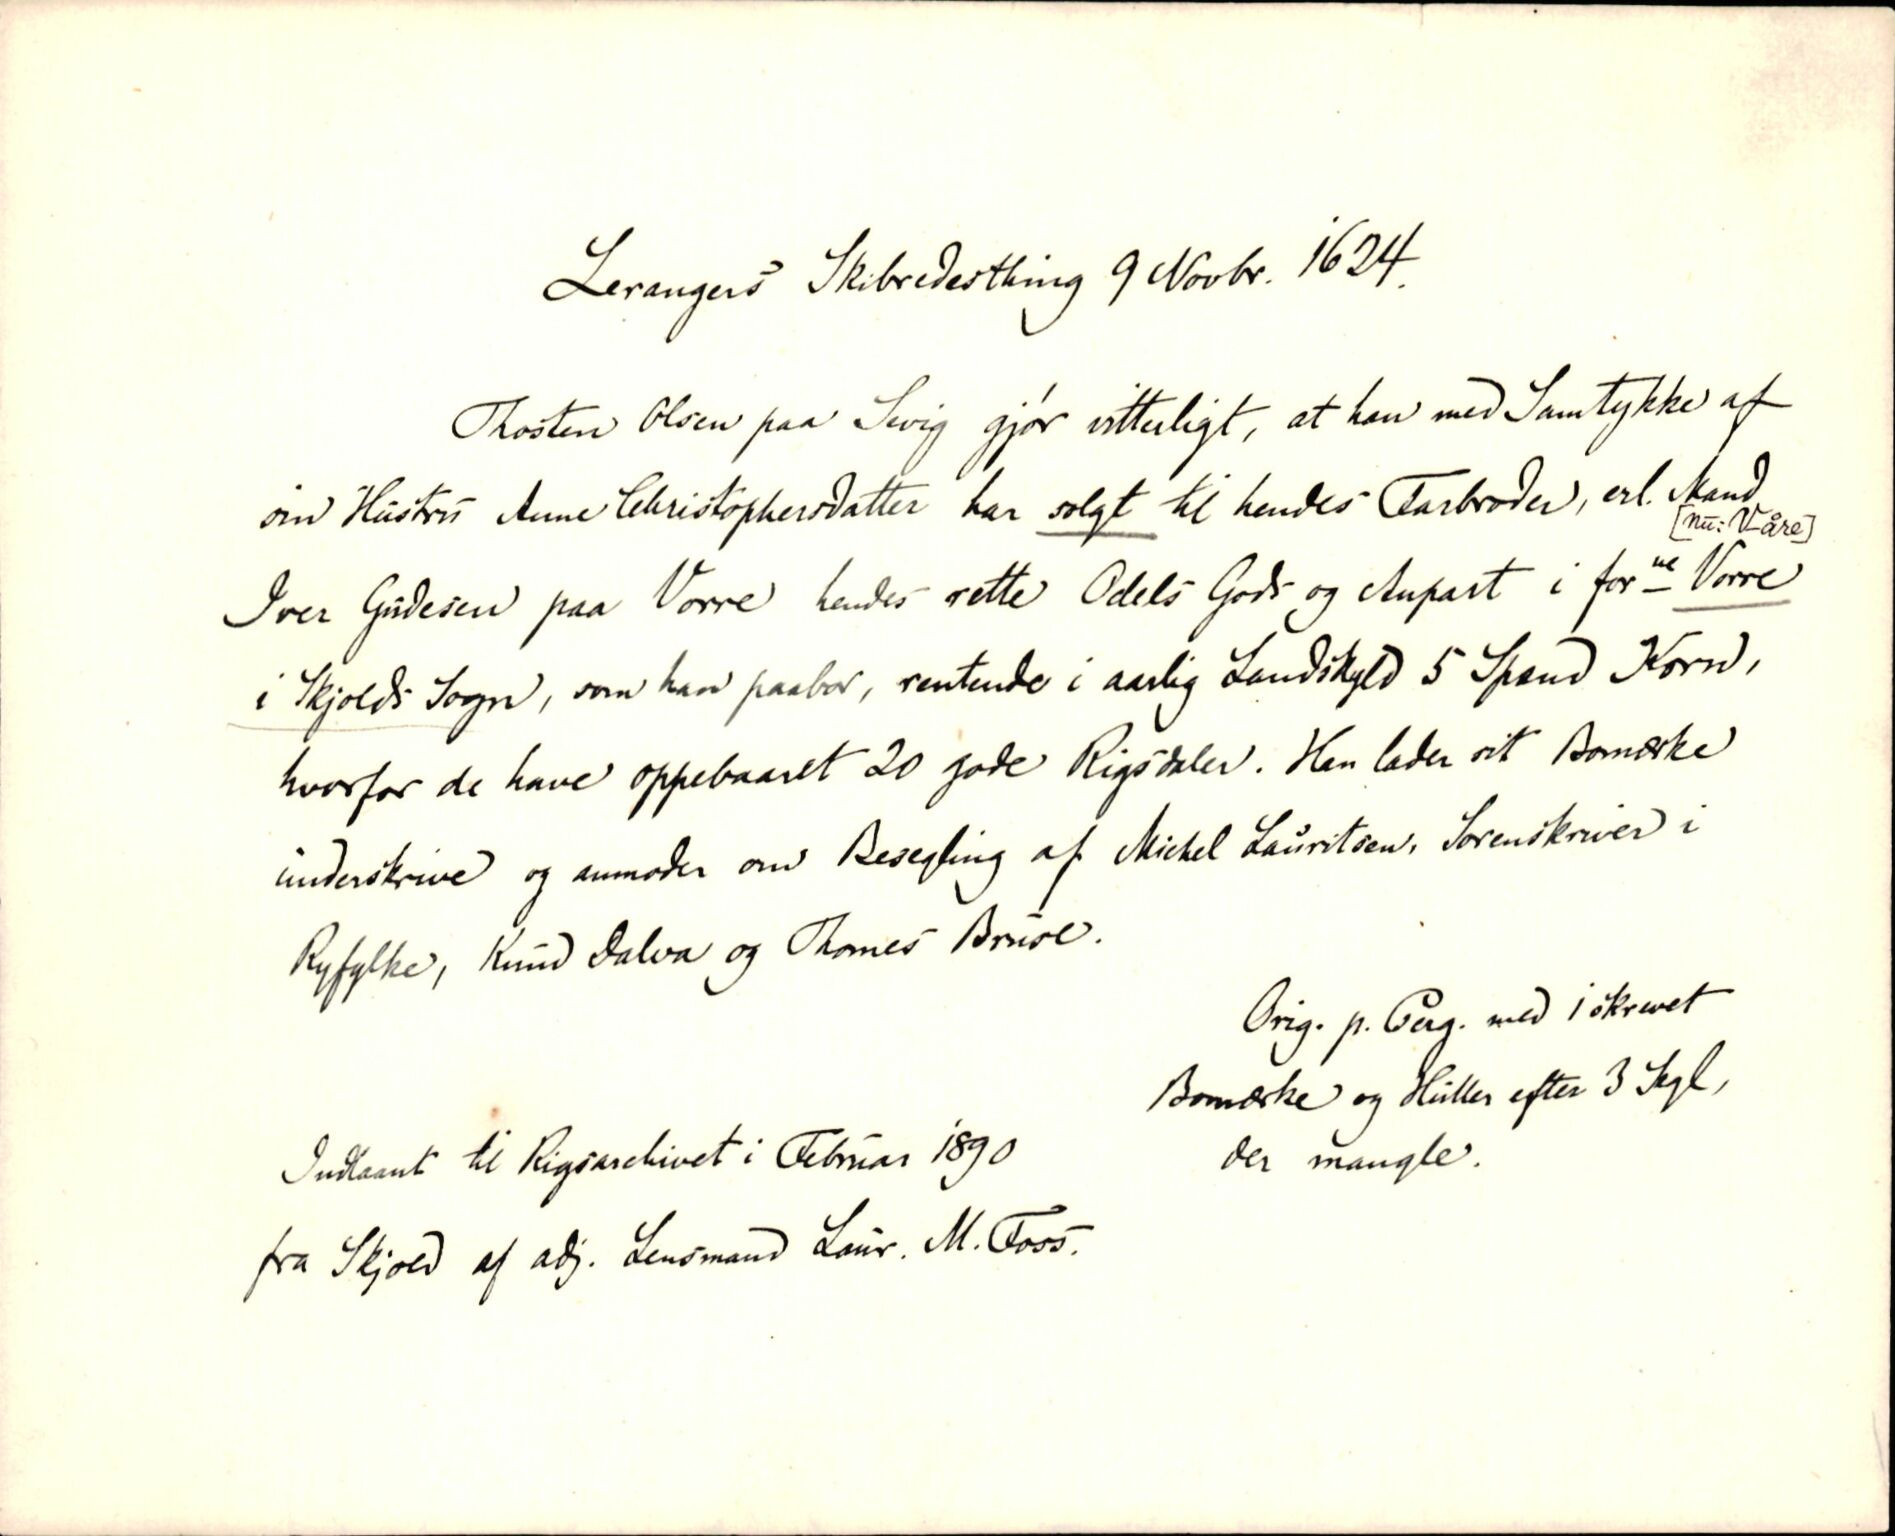 Lerangers Skibredesthing 9 Novbr. 1624.
Thosten Olsen paa Sevig gjör vitterligt, at han med Samtykke af
sin Hustru Anne Christophersdatter har solgt til hendes Farbroder, erl. Mand
[nu: Våre]
Iver Gudesen paa Vorre hendes rette Odels Gods og Anpart i forne Vorre
i Skjolds Sogn, som han paabor, rentende i aarlig Landskyld 5 Spand Korn,
hvorfor de have oppebaaret 20 gode Rigsdaler. Han lader sit Bomærke
underskrive og anmoder om Besegling af Michel Lauritsen, Sorenskriver i
Ryfylke, Knud Dalva og Thomes Bruse.
Orig. p. Perg. med iskrevet
Bomærke og Huller efter 3 Segl,
der mangle.
Indlaant til Rigsarchivet i Februar 1890
fra Skjold af adj. Lensmand Laur. M. Foss.